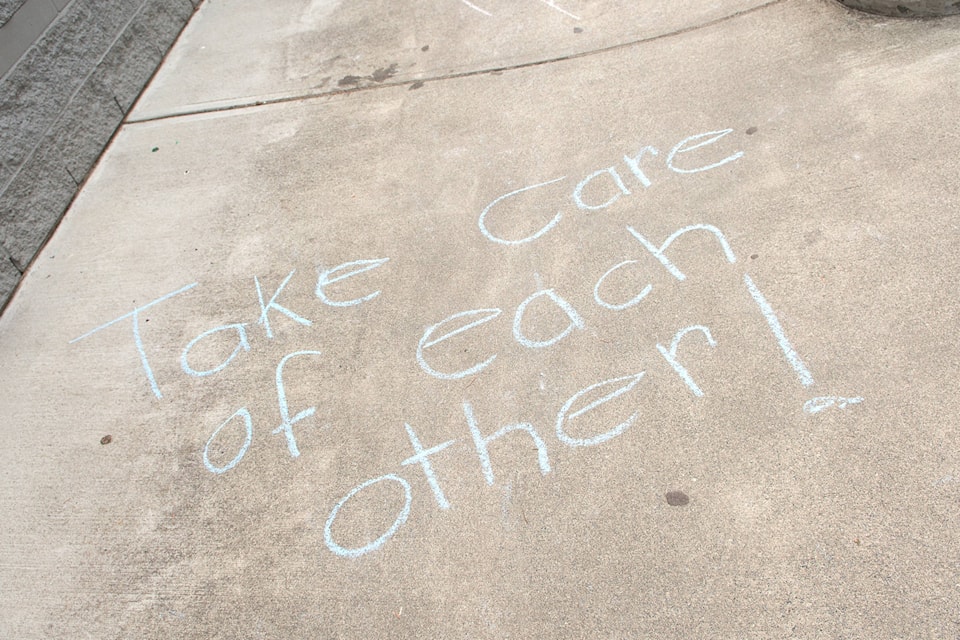 Take care
of each
other!